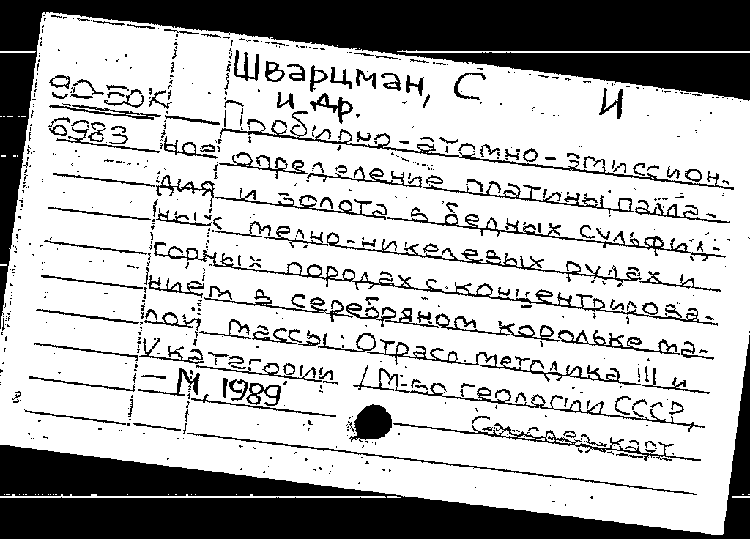 Шварцман, С И
90-50К и др.
6983 Пробирно-атомно-эмиссион-
ное определение платины, палла-
дия и золота в бедных сульфид-
ных медно-никелевых рудах и
горных породах с концентрирова-
нием в серебряном корольке ма-
лой массы: Отрасл. методика III и
V категории / М-во геологии СССР,
— М, 1989
См. след. карт.
8